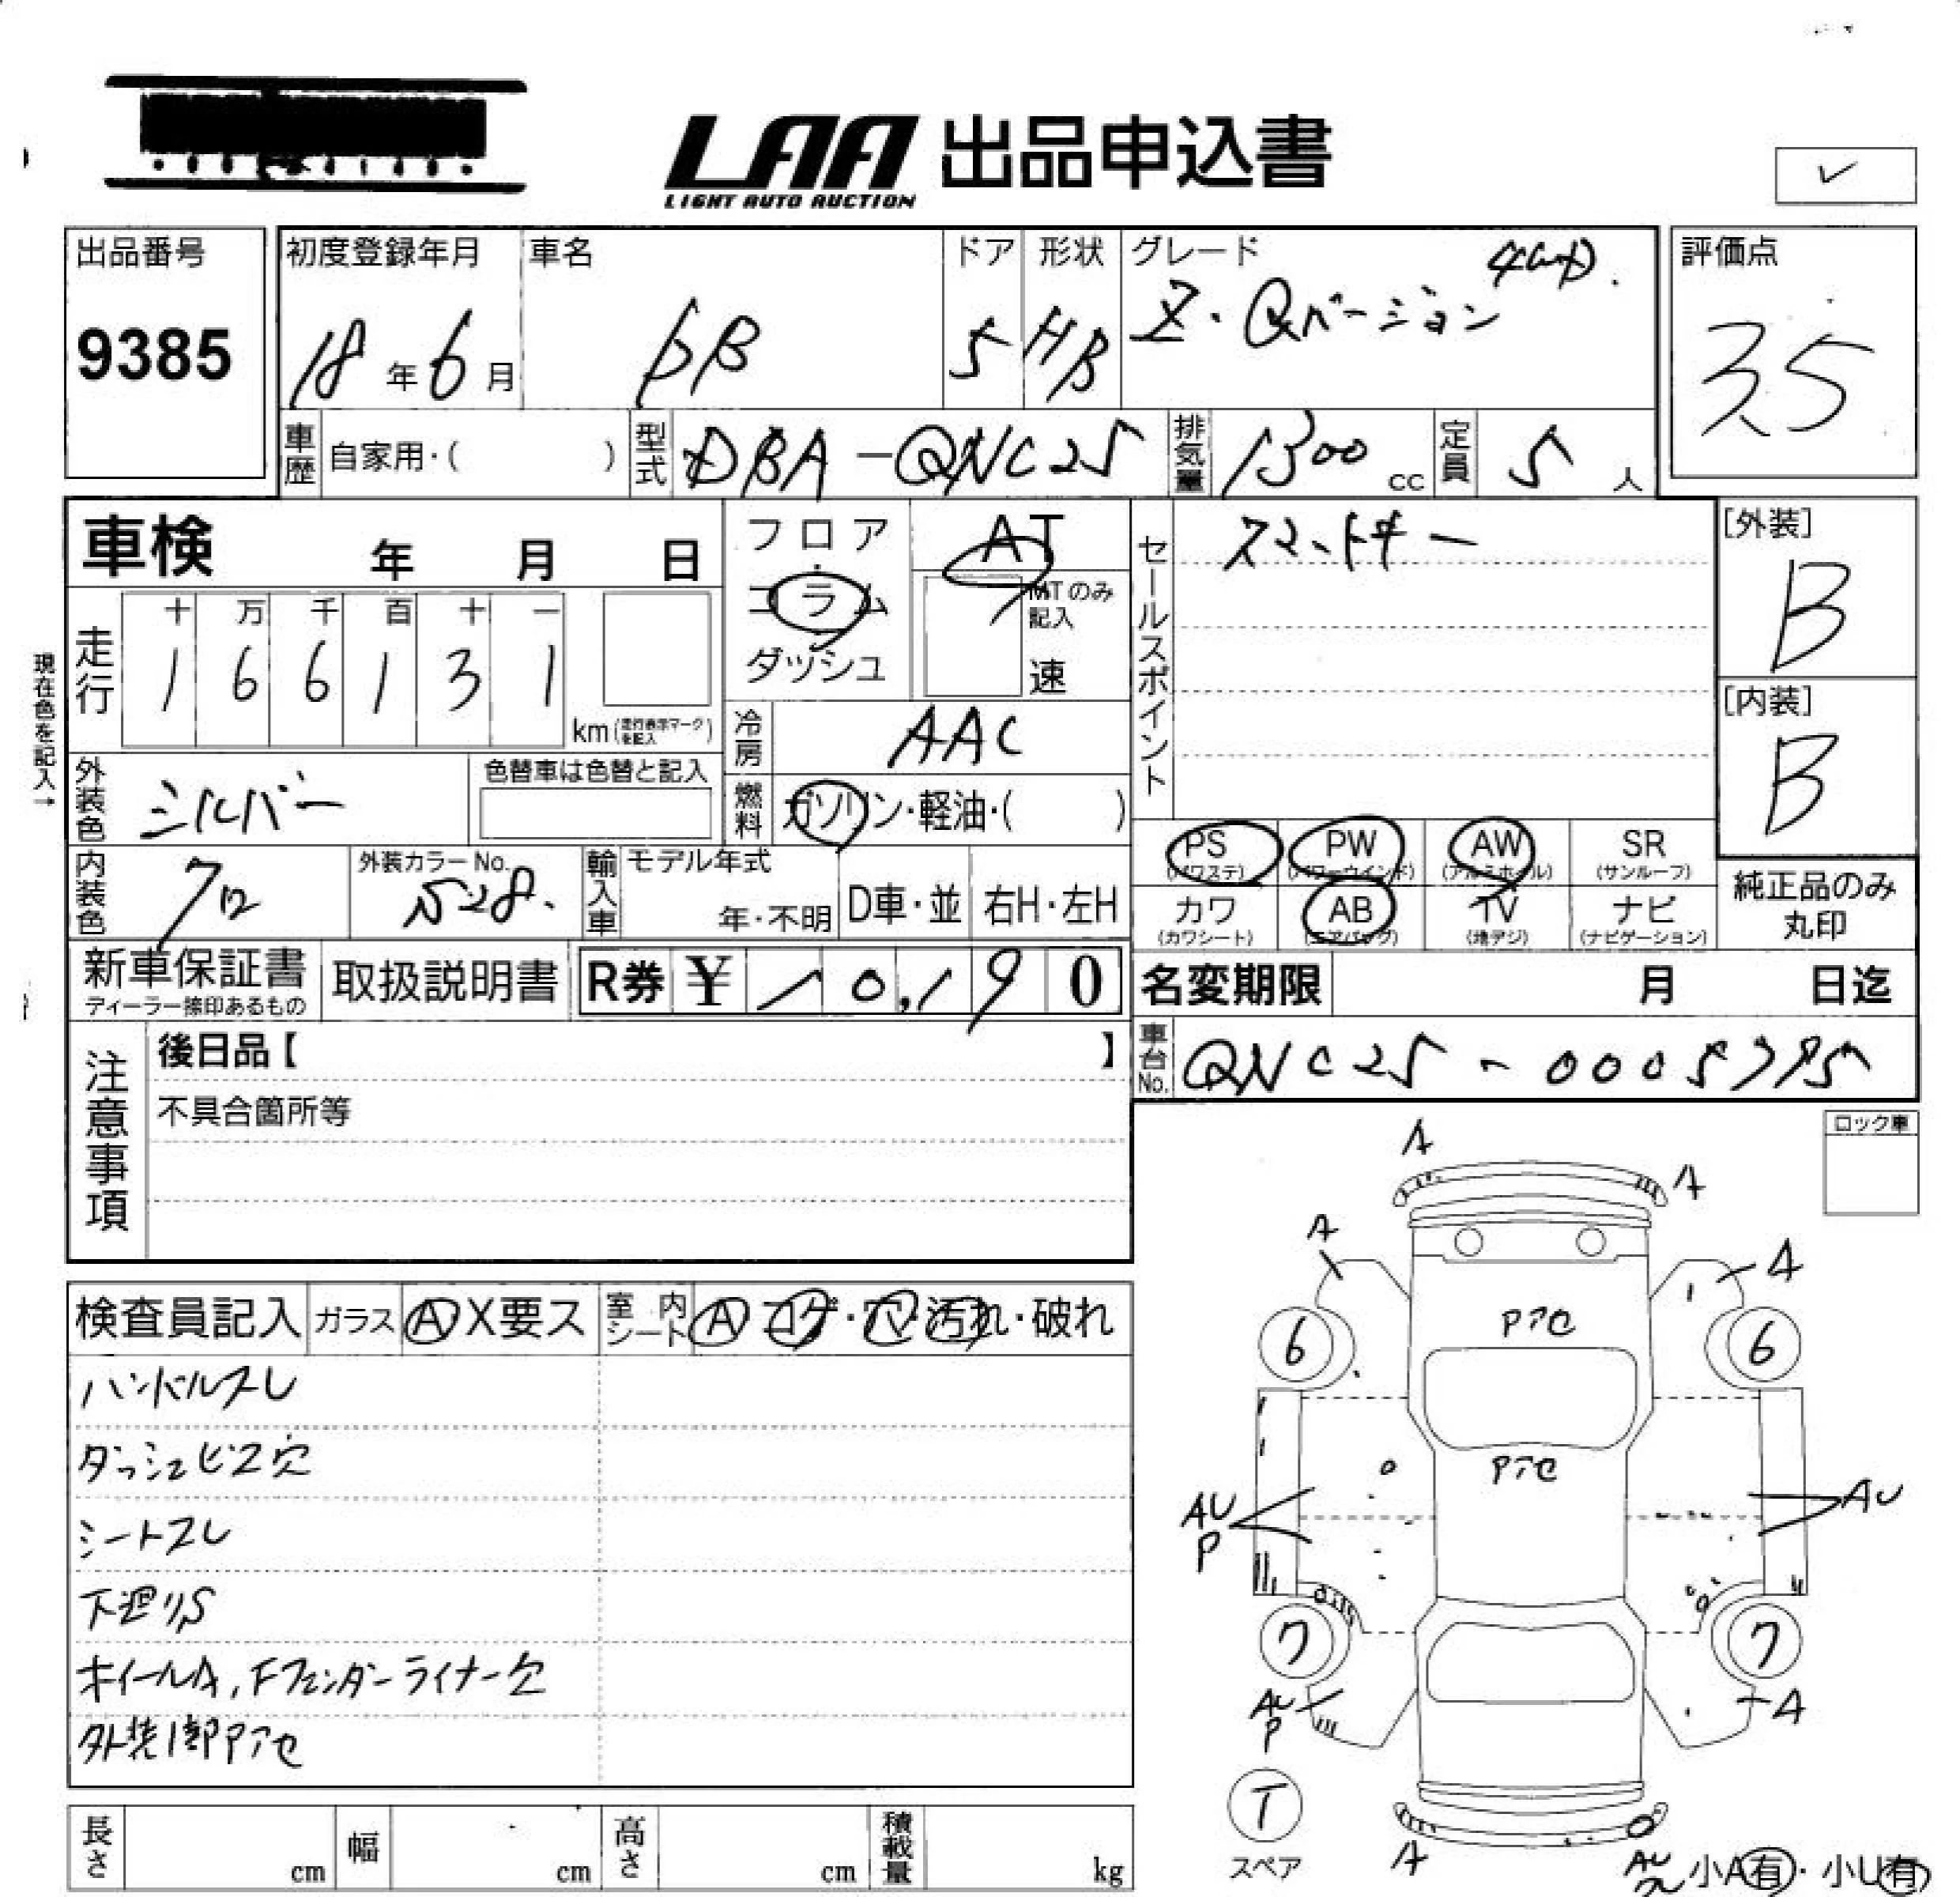 LAA 出品申込書
LIGHT AUTO AUCTION
出品番号
9385
初度登録年月
18年6月
車名
bB
ドア
5
形状
HB
グレード
Z・Qバージョン
4WD.
評価点
3.5
車歴 自家用・( )
型式 DBA-QNC25
排気量 1300 cc
定員 5 人
車検 年 月 日
フロア・コラム
ダッシュ
AT
MTのみ記入
速
セールスポイント
スマートキー
[外装]
B
[内装]
B
現在色を記入→
走行
十 万 千 百 十 一
1 6 6 1 3 1
km(走行表示マークを記入)
冷房 AAC
外装色 シルバー
色替車は色替と記入
燃料 ガソリン・軽油・( )
PS (パワステ)
PW (パワーウインド)
AW (アルミホイル)
SR (サンルーフ)
カワ (カワシート)
AB (エアバッグ)
TV (地デジ)
ナビ (ナビゲーション)
純正品のみ
丸印
内装色 クロ
外装カラーNo. S28.
輸入車
モデル年式
年・不明
D車・並
右H・左H
新車保証書
ディーラー捺印あるもの
取扱説明書
R券 ¥ 10,190
名変期限 月 日迄
注意事項
後日品【 】
不具合箇所等
車台No. QNC25-0005775
ロック車
検査員記入
ガラス A X要ス
室内シート A コゲ・穴・汚れ・破れ
ハンドルスレ
ダッシュビス穴
シートスレ
下廻りS
ホイールA,Fフェンダーライナー欠
外装1部Pアセ
A
A
A
A
6
6
Pアセ
Pアセ
AU
P
AU
7
7
AU
P
A
T
スペア
A
AU
小A有・小U有
長さ cm
幅 cm
高さ cm
積載量 kg